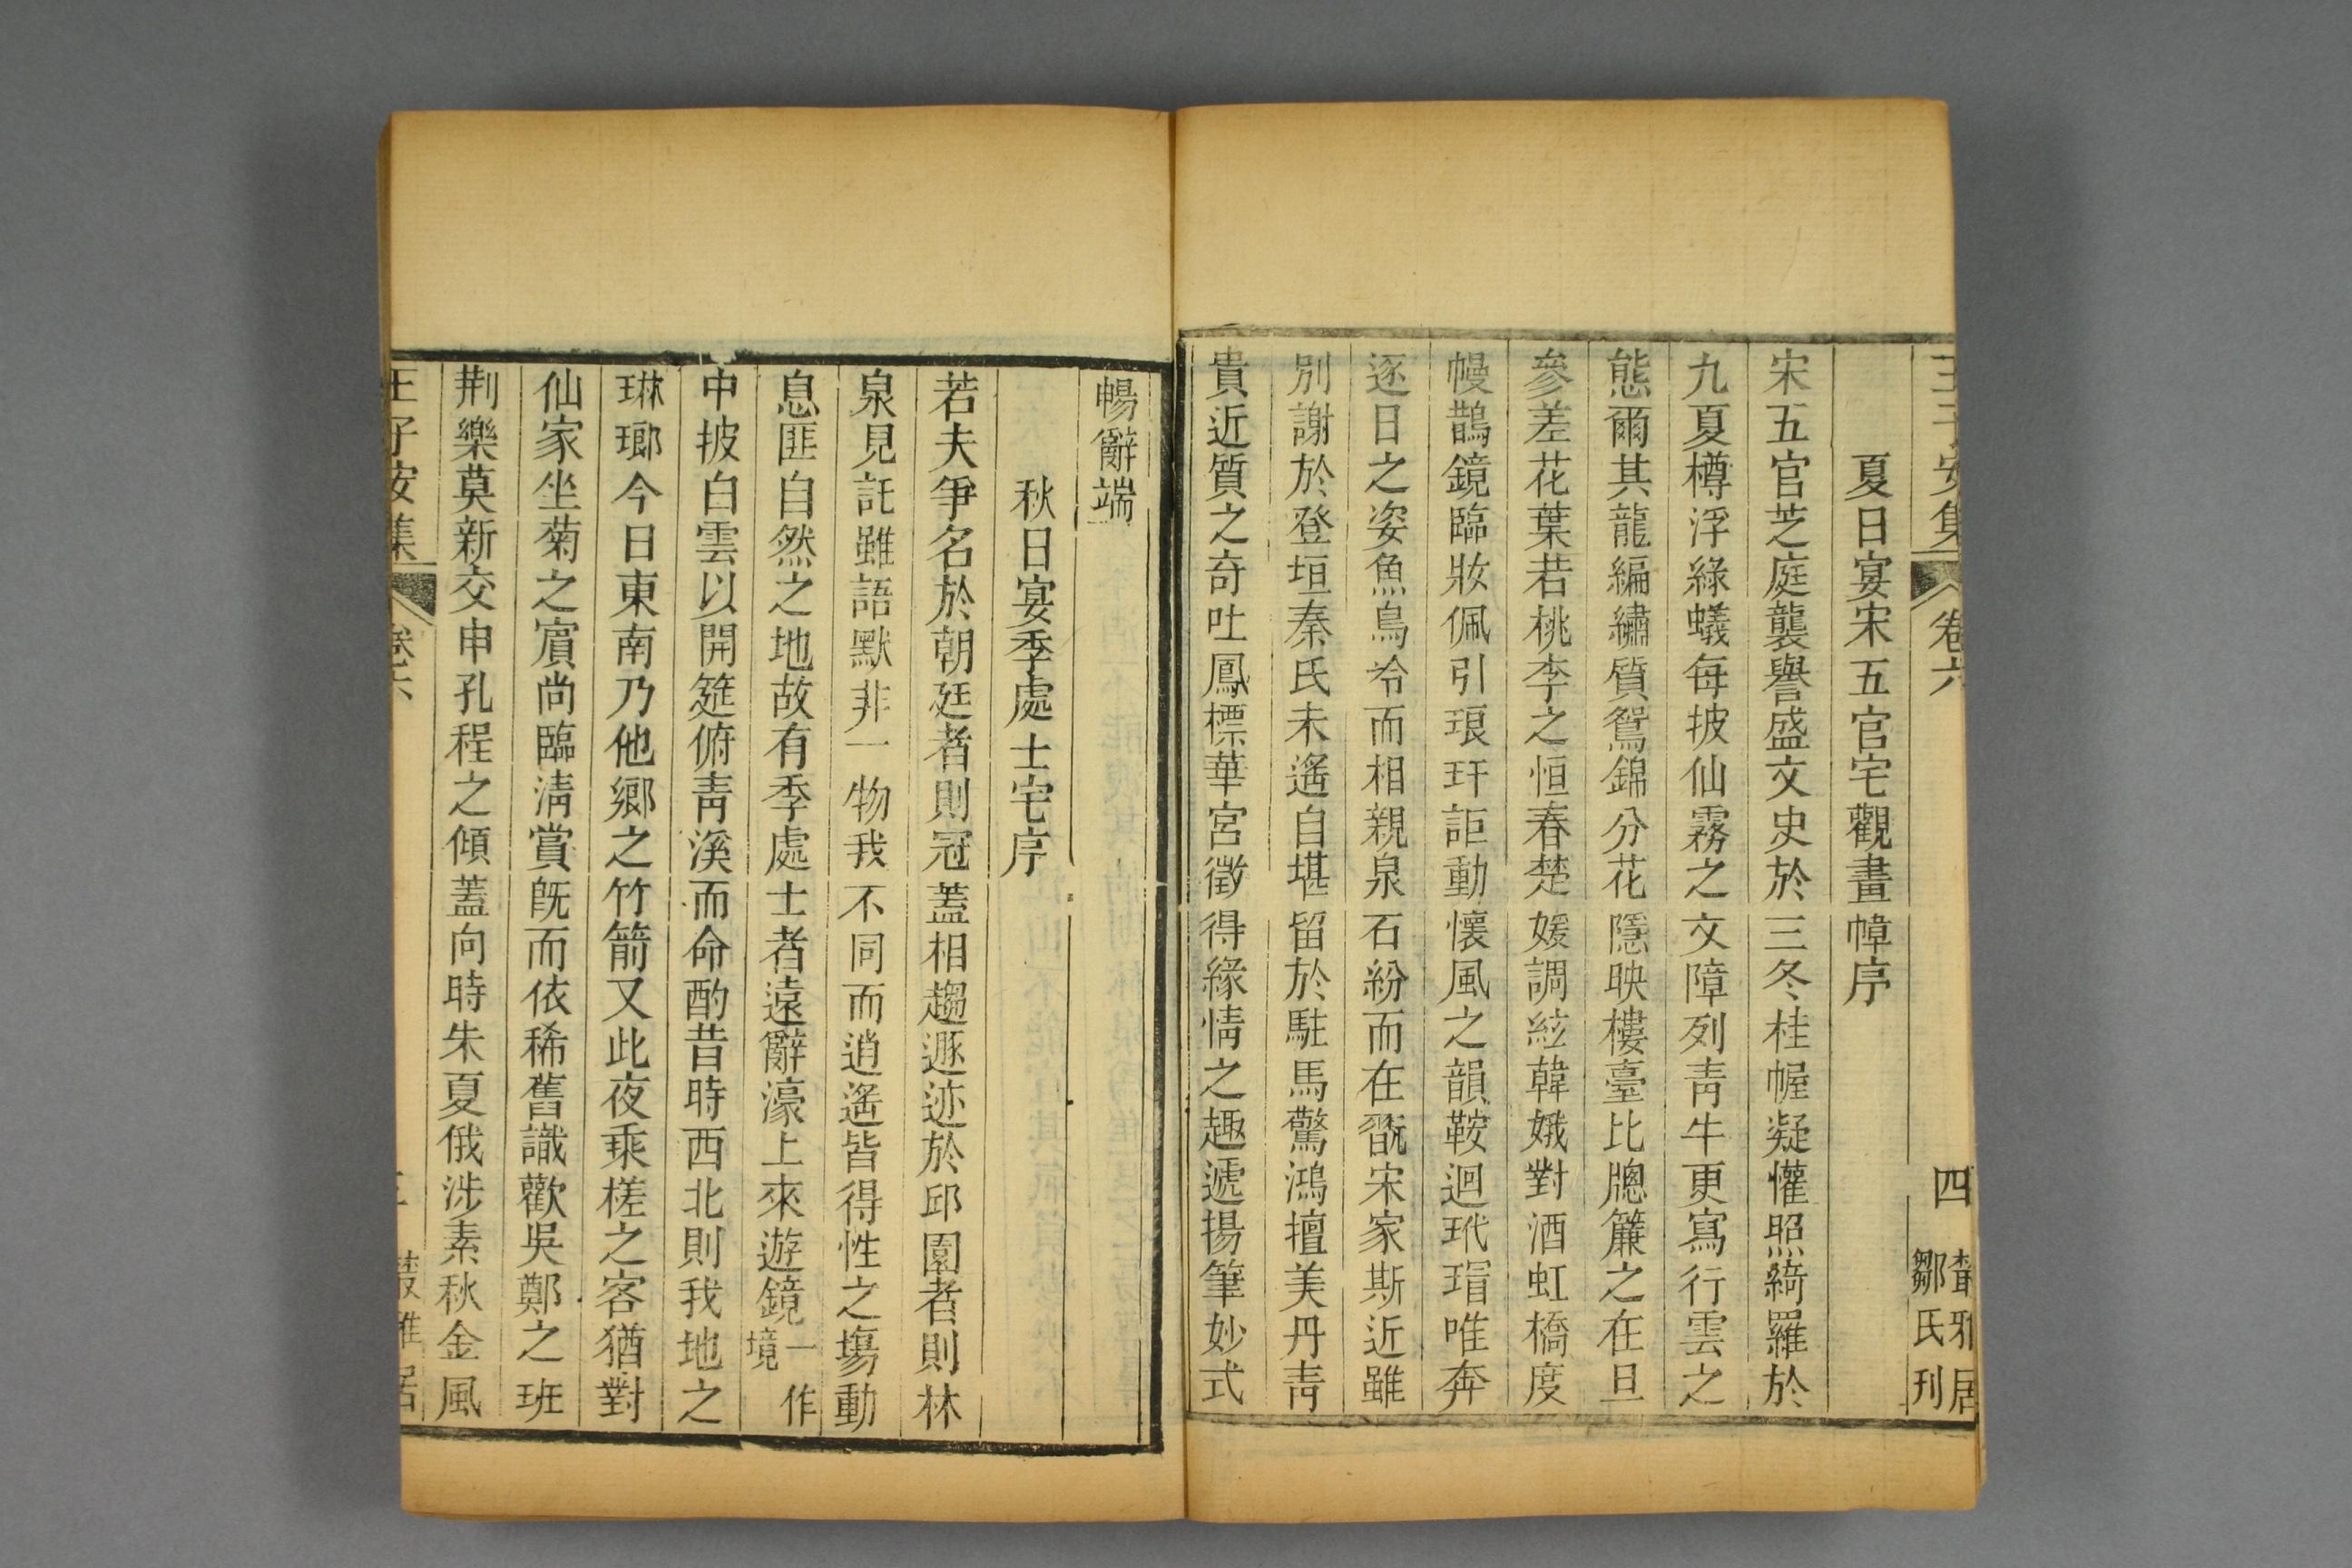 王子安集
卷六
四
叢雅居
鄒氏刊
夏日宴宋五官宅觀畫幛序
宋五官芝庭襲譽盛文史於三冬桂幄凝懽照綺羅於
九夏樽浮綠蟻每披仙霧之文障列青牛更寫行雲之
態爾其龍編繡質鴛錦分花隱映樓臺比牕簾之在旦
參差花葉若桃李之恒春楚媛調絃韓娥對酒虹橋度
幔鵲鏡臨妝佩引琅玕詎動懷風之韻鞍迴玳瑁唯奔
逐日之姿魚鳥冷而相親泉石紛而在翫宋家斯近雖
別謝於登垣秦氏未遙自堪留於駐馬驚鴻擅美丹青
貴近質之奇吐鳳標華宮徵得緣情之趣遞揚筆妙式
暢辭端
秋日宴季處士宅序
若夫爭名於朝廷者則冠蓋相趨遯迹於邱園者則林
泉見託雖語默非一物我不同而逍遙皆得性之塲動
息匪自然之地故有季處士者遠辭濠上來遊鏡一作境
中披白雲以開筵俯青溪而命酌昔時西北則我地之
琳瑯今日東南乃他鄉之竹箭又此夜乘槎之客猶對
仙家坐菊之賓尚臨淸賞旣而依稀舊識歡吳鄭之班
荆樂莫新交申孔程之傾蓋向時朱夏俄涉素秋金風
王子安集
卷六
叢雅居